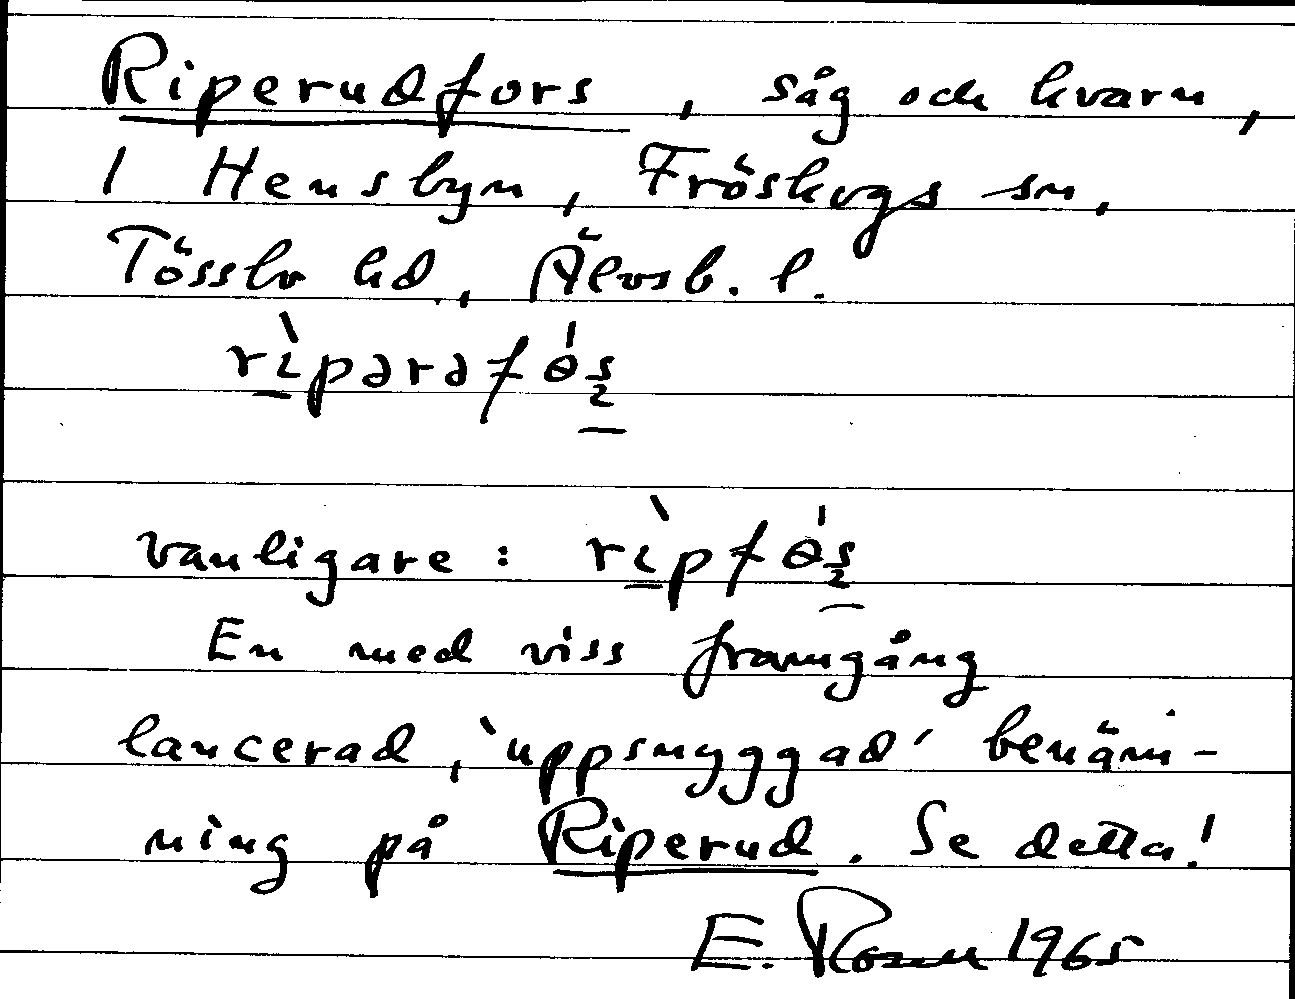 Riperudfors, såg och kvarn,
i Hensbyn, Fröskogs sn,
Tössbo hd., Älvsb. l.
rìpərəfó̵s
vanligare: rìpfó̵s
En med viss framgång
lancerad, 'uppsnyggad' benäm-
ning på Riperud. Se detta!
E. 1965